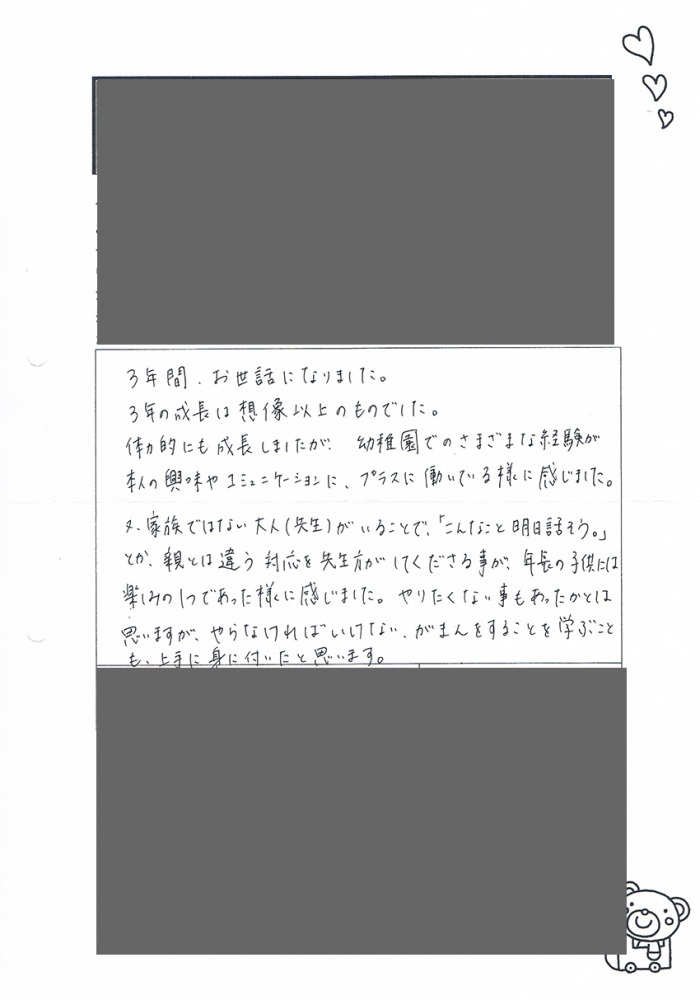 3年間、お世話になりました。
3年の成長は想像以上のものでした。
体力的にも成長しましたが、幼稚園でのさまざまな経験が
本人の興味やコミュニケーションに、プラスに働いている様に感じました。
又、家族ではない大人(先生)がいることで、「こんなこと明日話そう。」
とか、親とは違う対応を先生方がしてくださる事が、年長の子供には
楽しみの1つであった様に感じました。やりたくない事もあったかとは
思いますが、やらなければいけない、がまんをすることを学ぶこと
も、上手に身に付いたと思います。